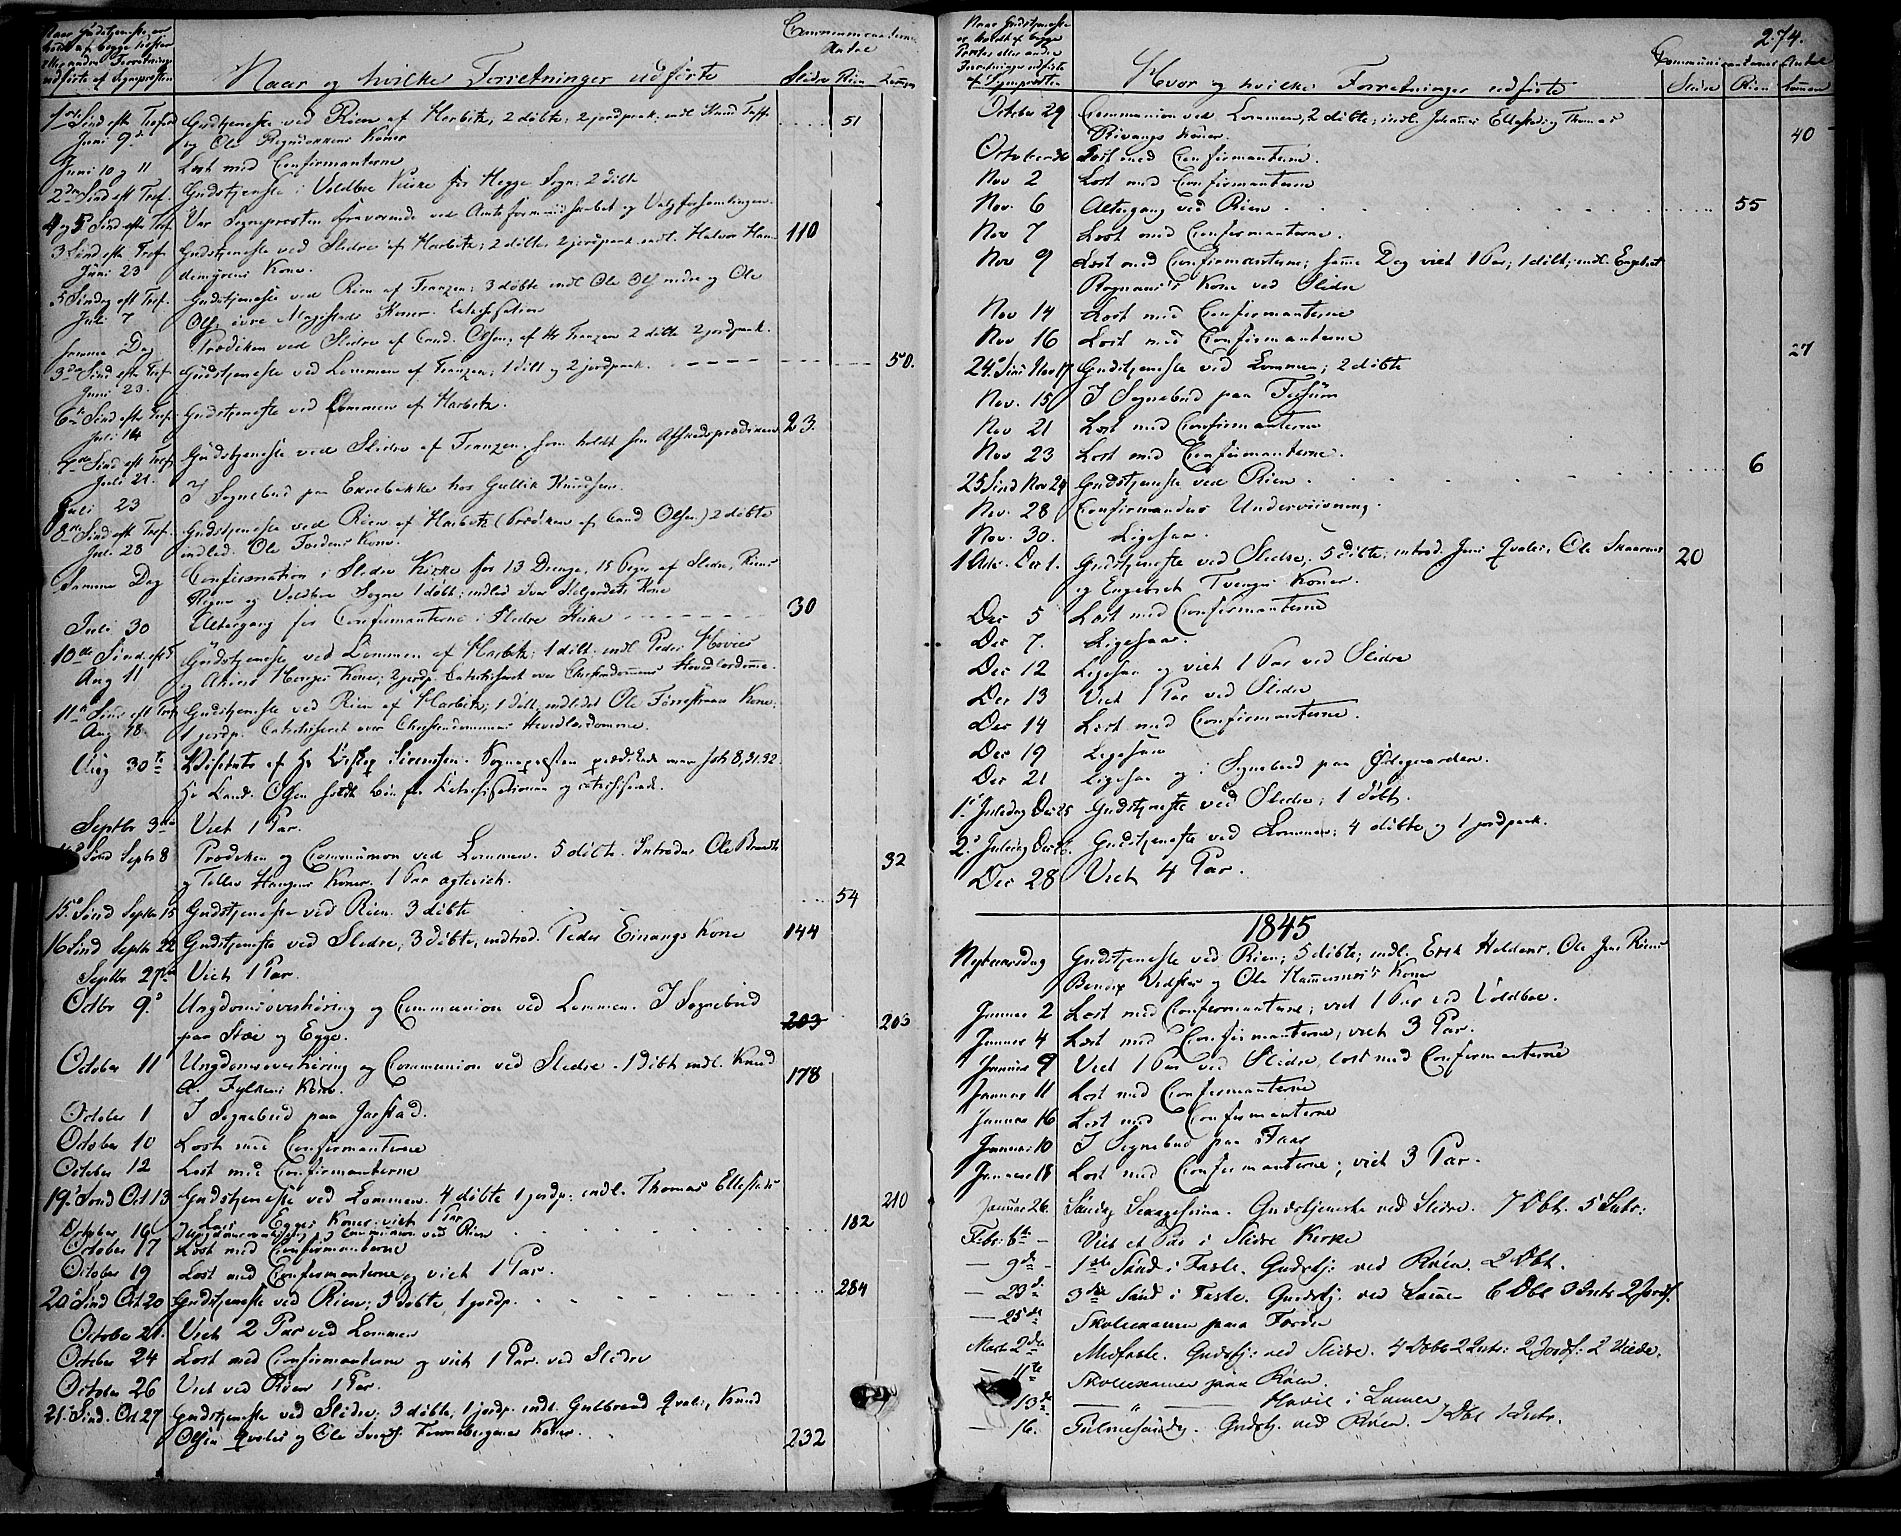 Naar Gudstjeneste er
holdt af begge Præster
eller andre Forretninger
udførte af Sognpræsten
Naar og hvilke Forretninger udførte
Communicanternes
Antal
Slidre Røen Lommen
1ste Sønd efter Trefold Gudstjeneste ved Røen af Harbitz, 2 døbte, 2 jordpaak. indl. Knud 51
Juni 9de og Ole Koner
Juni 10 og 11 Læst med Confirmanterne
2den Sønd eft Tref. Gudstjeneste i Voldbo Kirke for Hegge Sogn; 2 døbte
4 og 5 Sønd efter Tref Var Sognpræsten fraværende ved Amtsformandskabet og Valgforsamlingen
3 Sønd efter Tref. Gudstjeneste ved Slidre af Harbitz; 2 døbte, 2 jordpaak. indl. Halvor Ham- 110
Juni 23 demyrens Kone.
5 Søndag eft Tref. Gudstjeneste ved Røen af Franzen; 3 døbte indl Ole Ols nedre og Ole
Juli 7 Ols øvre Magistads Koner. Catechisation
Samme Dag Prædiken ved Slidre af Cand. Olsen, af Hr Franzen 2 døbte 2 jordpaak.
3die Sønd efter Tref Gudstjeneste ved Lommen af Franzen; 1 døbt og 2 jordpaak. 50.
Juni 23.
6te Sønd efter Tref. Gudstjeneste ved Lommen af Harbitz.
Juli 14
7de Sønd eft Tref. Gudstjeneste ved Slidre af Franzen, som holdt sin Afskedsprædiken 23.
Juli 21.
Juli 23 I Sognebud paa Ekrebakke hos Gullik Knudsen.
8de Sønd eft Tref. Gudstjeneste ved Røen af Harbitz (Prædiken af Cand Olsen) 2 døbte
Juli 28 indled. Ole Fordens Kone.
Samme Dag Confirmation i Slidre Kirke for 13 Drenge, 15 Piger af Slidre, Røens
Rogne og Voldbo Sogne 1 døbt; indled Iver Kone
Juli 30 Altergang for Confirmanterne i Slidre Kirke 30
10de Sønd. eft T Gudstjeneste ved Lommen af Harbitz; 1 døbt; indl Peder Hovies
Aug 11 og Koner; 2 jordp. Catechiseret over Christendommens Hovedlærdomme.
11te Sønd eft Tref Gudstjeneste ved Røen af Harbitz; 1 døbt, indledet Ole Kone.
Aug 18. 1 jordp. Catechiseret over Christendommens Hovedlærdomme.
Aug 30te Visitats af Hr Biskop Sørenssen. Sognepræsten prædikede over Joh 8,31.32.
Hr Cand. Olsen holdt Bøn før Catechisationen og catechiserede.
Septbr 3die Viet 1 Par.
Sønd Septbr 8 Prædiken og Communion ved Lommen. 5 døbte. Introdr. Ole Brandts 32
og Tollev Haugens Koner. 1 Par ægteviet.
15de Sønd Septbr 15 Gudstjeneste ved Røen. 3 døbte 54
16 Sønd Septbr 22 Gudstjeneste ved Slidre, 3 døbte, introd. Peder Einangs Kone 144
Septbr 27de Viet 1 Par.
Octbr 9de Ungdomsoverhøring og Communion ved Lommen. I Sognebud 203 203
paa Støe og Egge.
October 11 Ungdomsoverhøring og Communion ved Slidre. 1 døbt indl. Knud 178
A. Fylkens Kone.
October 1 I Sognebud paa Jarstad.
October 10 Læst med Confirmanterne
October 12 Læst med Confirmanterne
19. Sønd Oct 13 Gudstjeneste ved Lommen. 4 døbte 1 jordp; indl. Thomas Ellestads 210
Lars Egges Koner; viet 1 Par
October 16 Ungdomsoverhøring og Communion ved Røen 182
October 17 Læst med Confirmanterne
October 19 Læst med Confirmanterne og viet 1 Par.
20de Sønd Oct 20 Gudstjeneste ved Røen; 3 døbte, 1 jordp. 284
October 21. Viet 2 Par ved Lommen
October 24 Læst med Confirmanterne og viet 1 Par. ved Slidre
October 26 Viet ved Røen 1 Par.
21. Sønd. Oct 27 Gudstjeneste ved Slidre; 3 døbte, 1 jordp. indl. Gulbrand Qvales, Knud
Olsen Qvales og Ole Koner. 232
274.
Naar Gudstjeneste
er holdt af begge
Præster eller andre
Forretninger udførte
af Sognpræsten
Hvor og hvilke Forretninger udførte
Communicanternes Antal
Slidre Røen Lommen
October 29 Communion ved Lommen, 2 døbte; indl. Johannes Ellestad og Thomas 40
Koner.
October 31 Læst med Confirmanterne.
Nov 2 Læst med Confirmanterne
Nov. 6 Altergang ved Røen 55
Nov 7 Læst med Confirmanterne.
Nov 9 Læst med Confirmanterne; samme Dag viet 1 Par; 1 døbt; indl. Engebret
Rognaas's Kone ved Slidre
Nov 14 Læst med Confirmanterne
Nov 16 Læst med Confirmanterne
24de Sønd Nov 17 Gudstjeneste ved Lommen; 2 døbte 27
Nov. 15 I Sognebud paa
Nov 21 Læst med Confirmanterne
Nov 23 Læst med Confirmanterne.
25 Sønd Nov 24 Gudstjeneste ved Røen. 6
Nov. 28 Confirmandus Underviisning.
Nov. 30. Ligesaa.
1 Adv. Dec 1. Gudstjeneste ved Slidre, 5 døbte; introd. Jens Qvales, Ole 20
og Engebret Tvenges Koner.
Dec 5 Læst med Confirmanterne
Dec 7. Ligesaa.
Dec 12 Ligesaa og viet 1 Par ved Slidre
Dec 13 Viet 1 Par ved Slidre
Dec 14 Læst med Confirmanterne.
Dec 19 Ligesaa
Dec 21 Ligesaa og i Sognebud paa Ødegaarden.
1. Juledag Dec 25 Gudstjeneste ved Slidre; 1 døbt.
2. Juledag Dec 26. Gudstjeneste ved Lommen; 4 døbte og 1 jordpaak.
Dec 28 Viet 4 Par.
1845
Nytaarsdag Gudstjeneste ved Røen; 5 døbte; indl. Erik Ole Jens Røens
og Ole Koner
Januar 2 Læst med Confirmanterne; viet 1 Par ved Voldboe.
Januar 4 Læst med Confirmanterne; viet 3 Par.
Januar 9 Viet 1 Par ved Slidre, læst med Confirmanterne
Januar 11 Læst med Confirmanterne
Januar 16 Læst med Confirmanterne
Januar 10 I Sognebud paa
Januar 18 Læst med Confirmanterne; viet 3 Par.
Januar 26. Søndag Sexagesima. Gudstjeneste ved Slidre. 7 Døbt. 5 Intr:
Febr: 6te Viet et Par i Slidre Kirke
— 9de 1ste Sønd i Faste. Gudstj: ved Røen. 2 Døbt.
— 23de 3die Sønd i Faste. Gudstj. ved Lomen 6 Døbt 3 Intr 2 Jordf.
— 25de Skoleexamen paa
Marts 2den Midfaste. Gudstj: ved Slidre. 4 Døbte 2 Intr: 2 Jordf: 2 Viede.
— 11te Skoleexamen paa Røen.
— 13de — " — Hovie i Lomen
— 16. Palmesøndag. Gudstj. ved Røen. 7 Døbt 1 Intr.